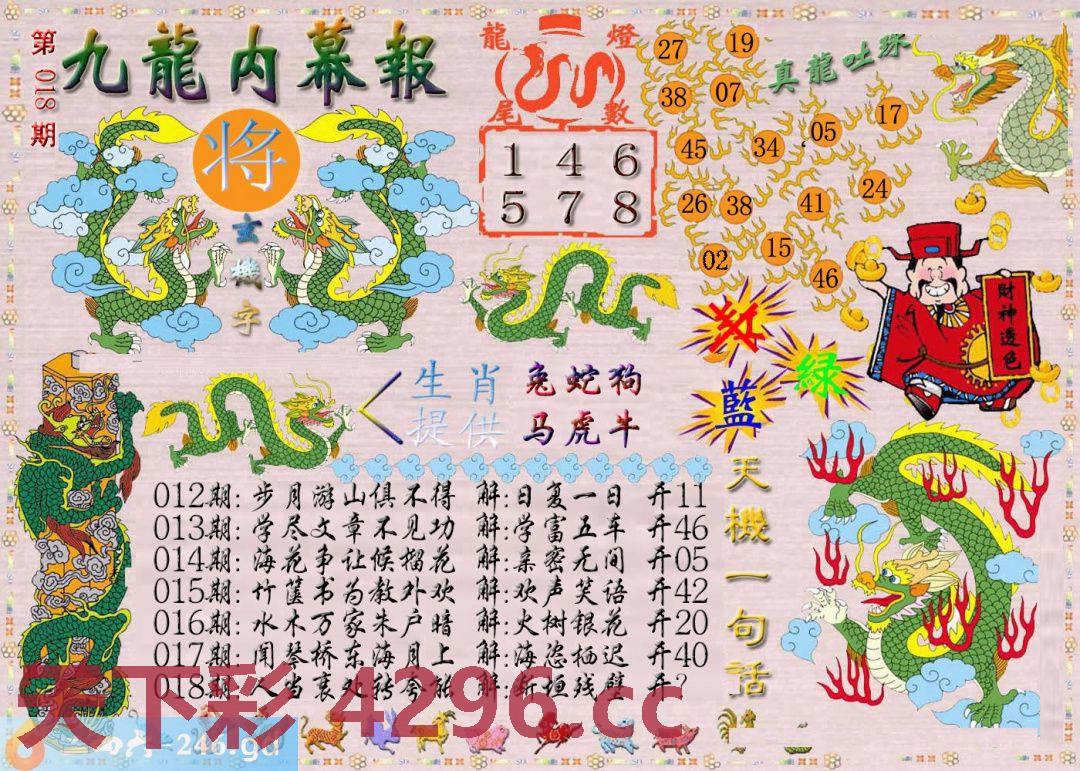 第018期
九龍内幕報
将
玄機字
龍燈
尾數
1 4 6
5 7 8
真龍吐珠
27 19
38 07
45 34 05 17
26 38 41 24
02 15 46
財神透色
红
藍 綠
生肖 兔蛇狗
提供 马虎牛
012期: 步月游山俱不得 解:日复一日 开11
013期: 学尽文章不见功 解:学富五车 开46
014期: 海花争让候榴花 解:亲密无间 开05
015期: 竹箧书为教外欢 解:欢声笑语 开42
016期: 水木万家朱户暗 解:火树银花 开20
017期: 闻琴桥东海月上 解:海恣栖迟 开40
018期: 人当衰处转夸能 解:断垣残壁 开?
天機一句話
天下彩 4296.cc
=246.gd